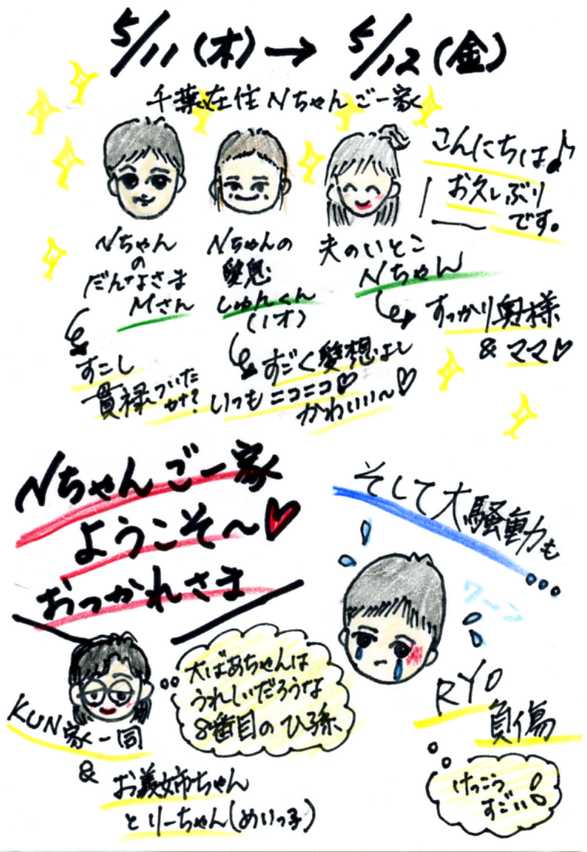 5/11(木)→ 5/12(金)
千葉在住Nちゃんご一家
こんにちは♪
お久しぶり
です。
Nちゃん
の
だんなさま
Mさん
すこし
貫禄づいた
かな?
Nちゃんの
愛息
しゅんくん
(1才)
すごく愛想よし
いつもニコニコ♡
かわいい~♡
夫のいとこ
Nちゃん
すっかり奥様
&ママ♡
Nちゃんご一家
ようこそ~♥
おつかれさま
そして大騒動も
...
ワーン
RYO
負傷
けっこう
すごい!
大ばあちゃんは
うれしいだろうな
8番目のひ孫
KUN家一同
&
お義姉ちゃん
とりーちゃん(めいっ子)